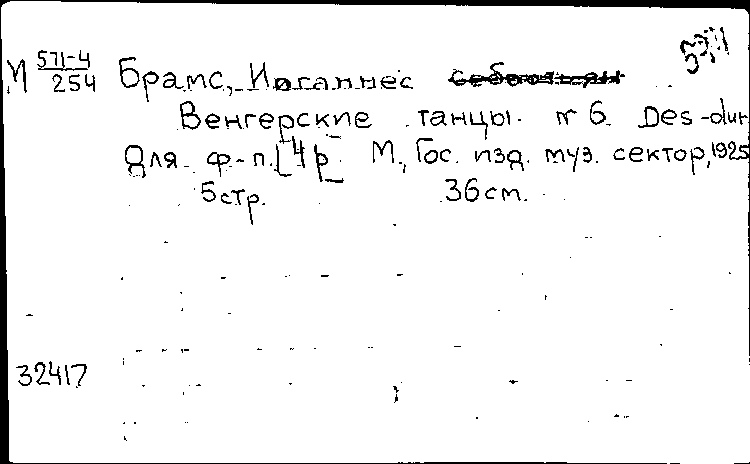 М 571-4/254 Брамс, Иоганнес
Венгерские танцы. № 6. Des-dur.
Для ф-п. [4 р. М., Гос. изд. муз. сектор, 1925
5 стр. 36 см.
32417